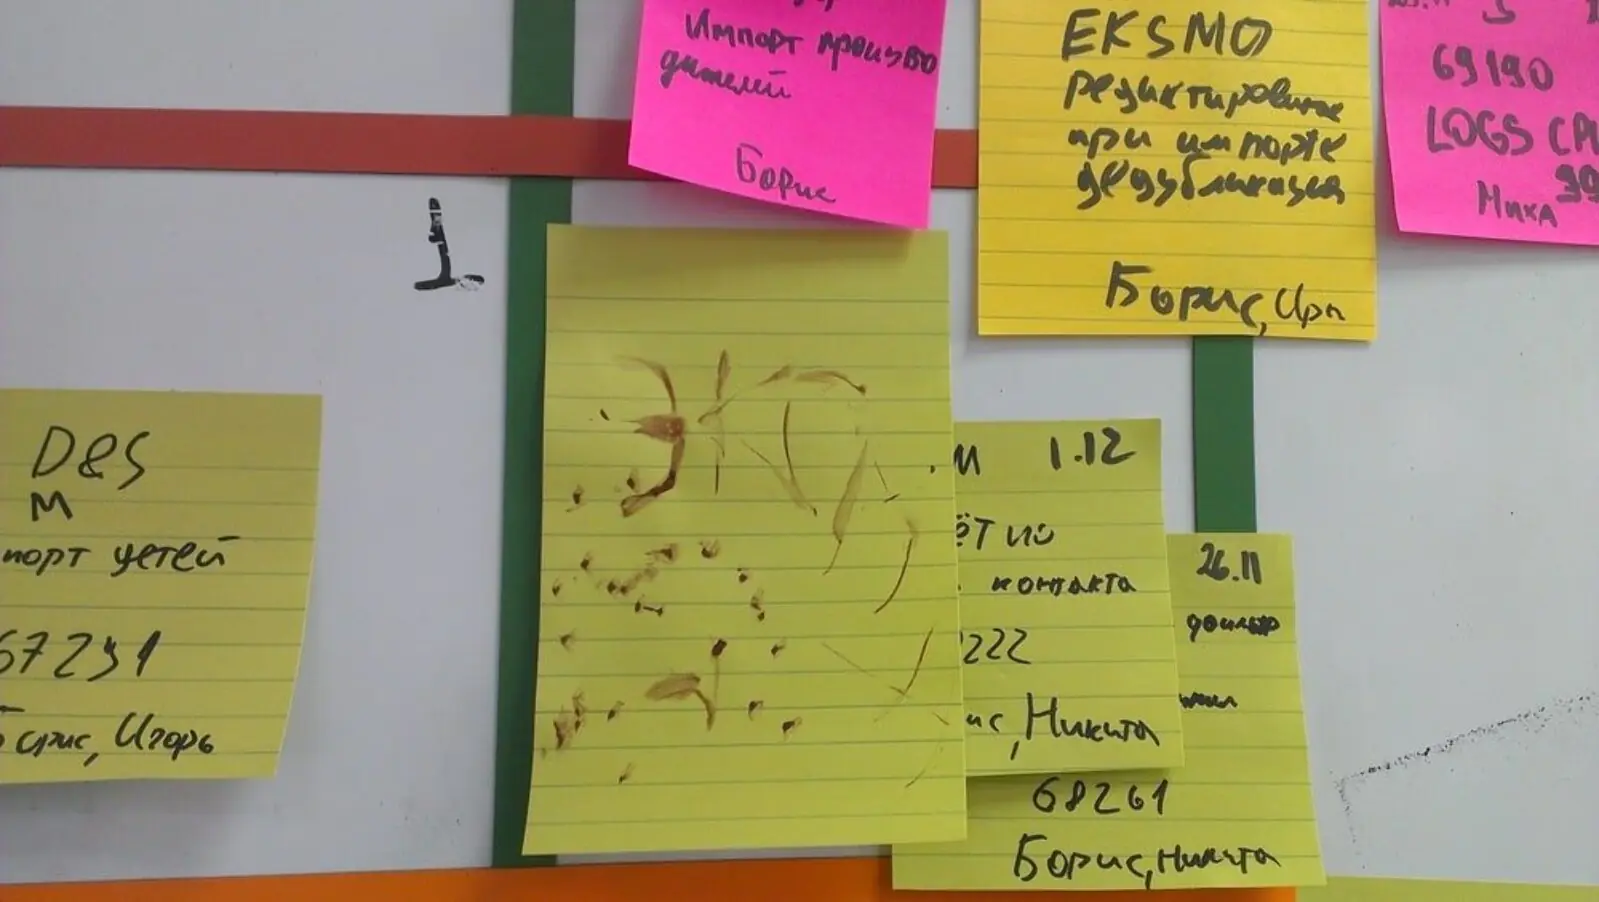 Импорт произво
дителей
Борис
EKSMO
редактирование
при импорте
дедубликация
Борис, Ира
69190
LOGS CPU
Миха 99
1
D&S
М
порт детей
67291
Борис, Игорь
М 1.12
ёт по
контакта
2222
ис, Никита
26.11
68261
Борис, Никита